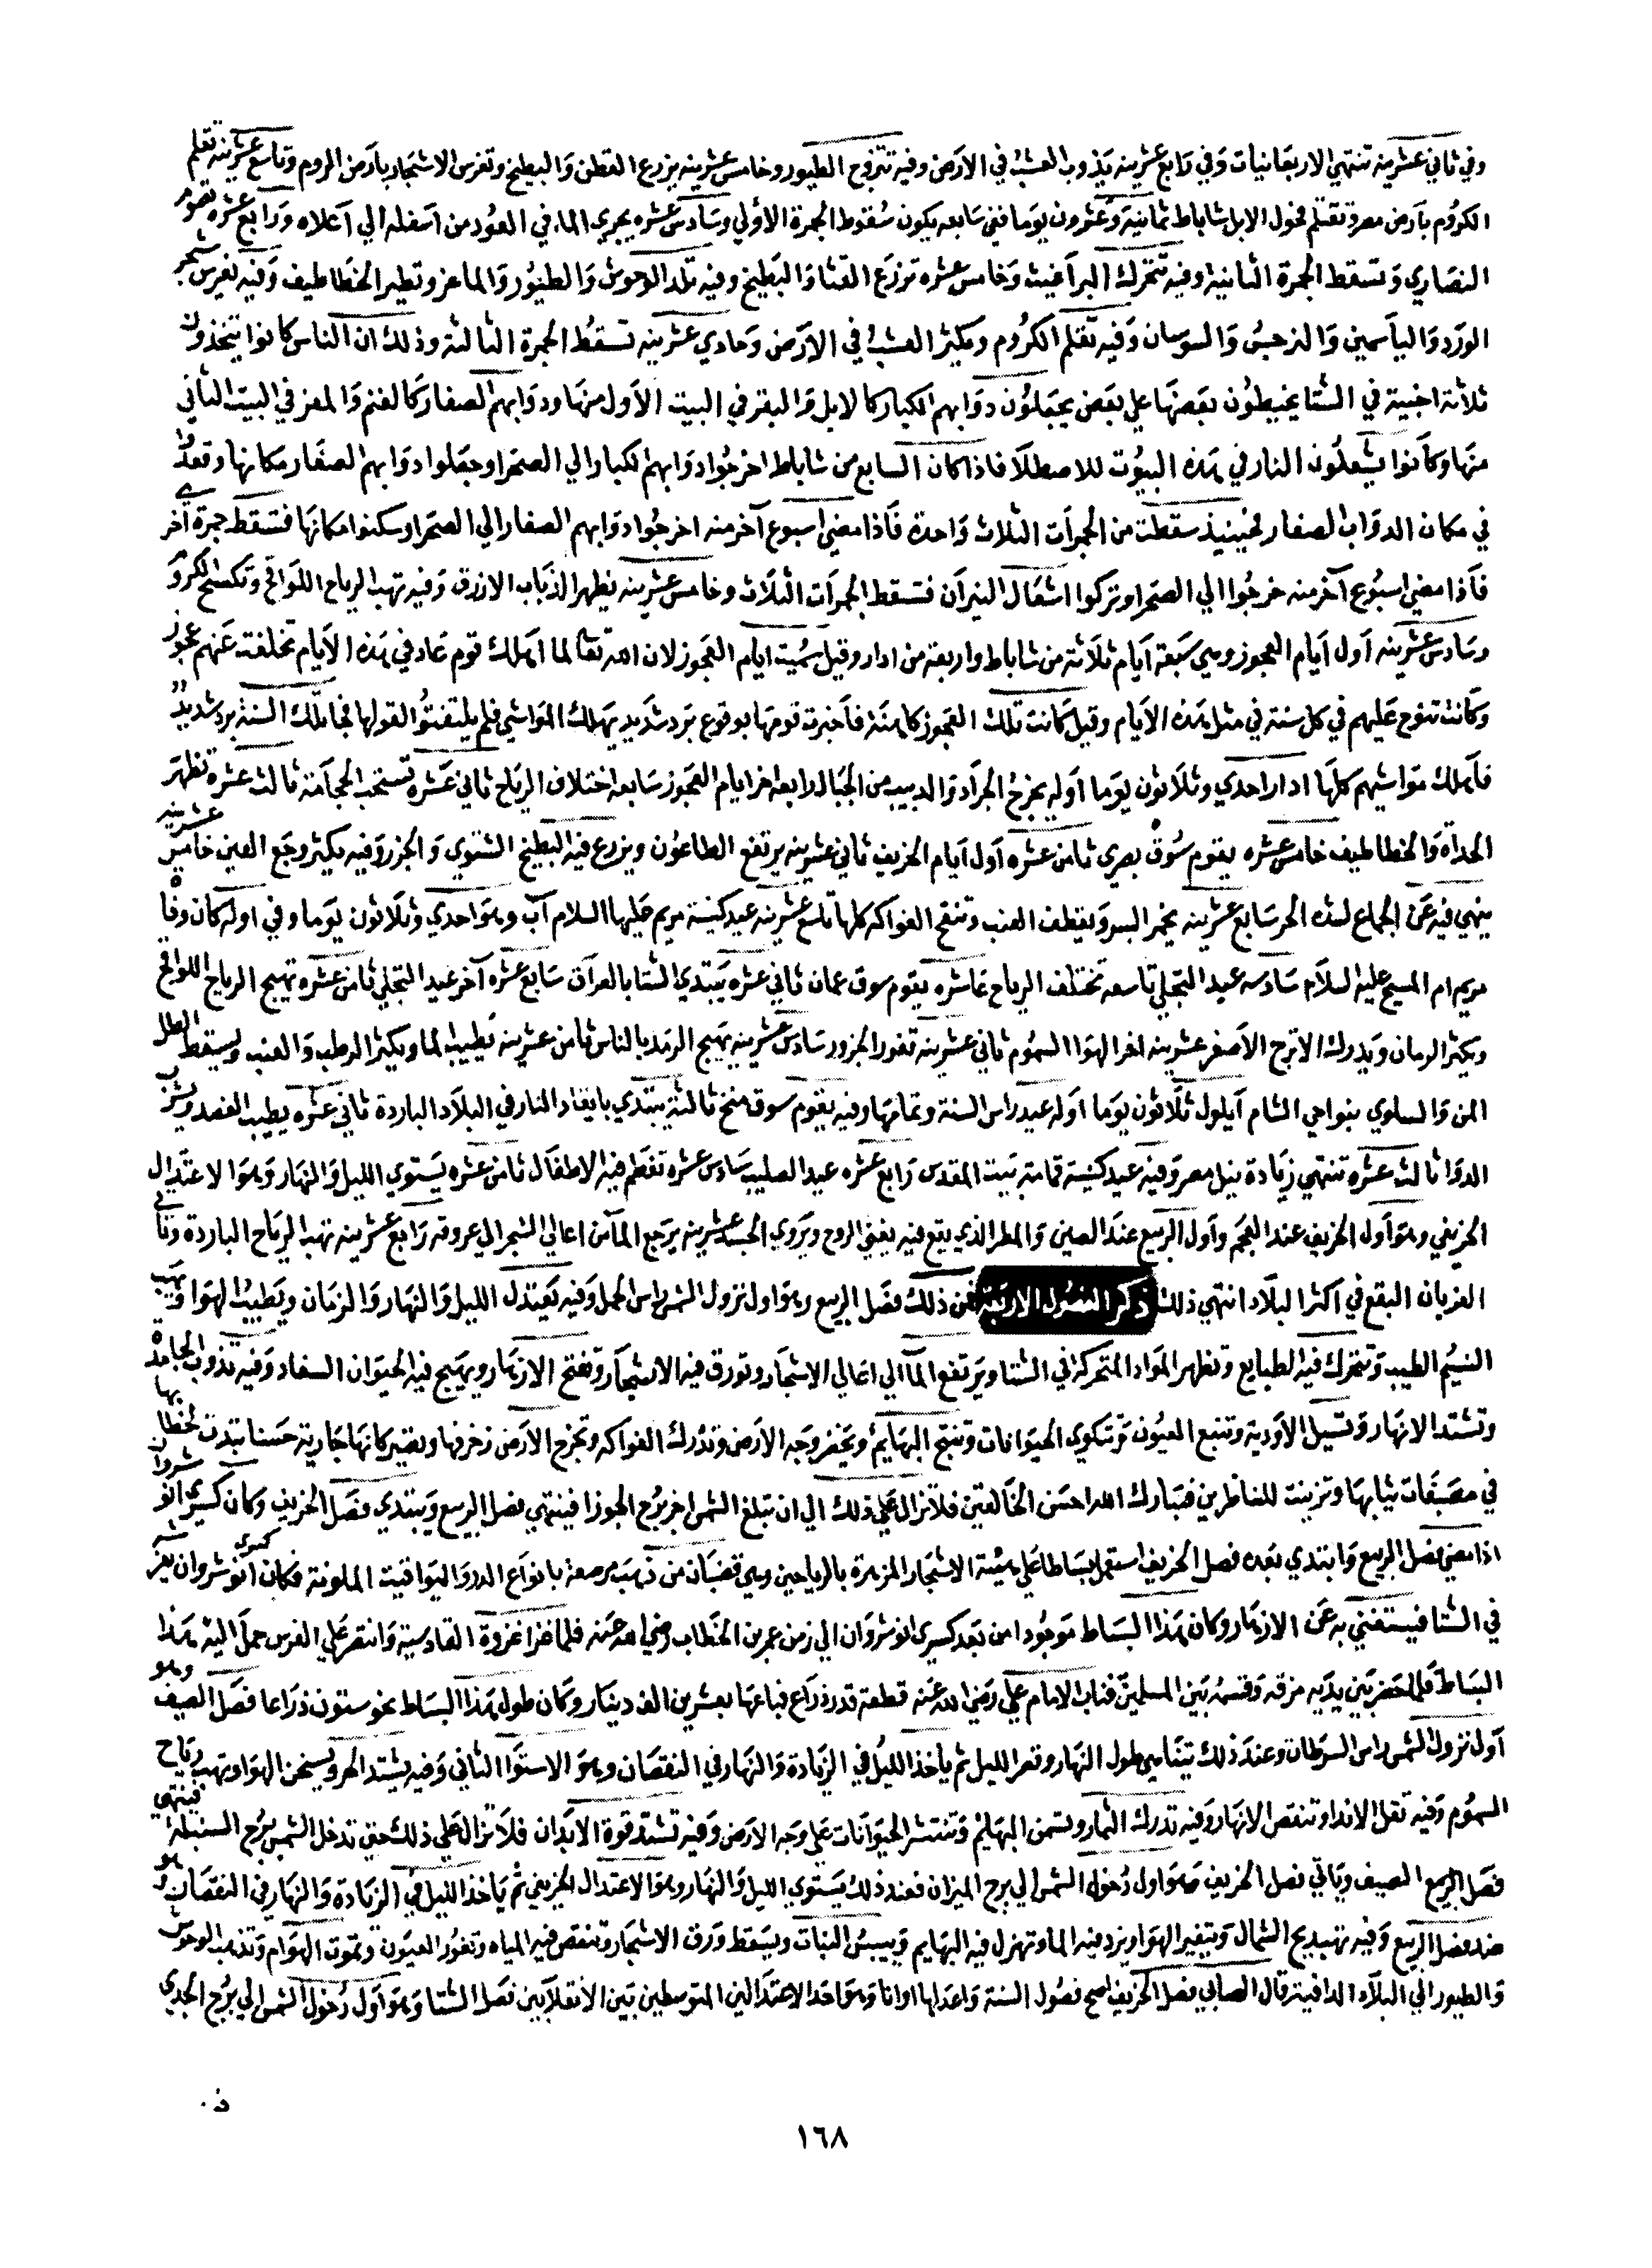 وفي ثاني عشرينه تنتهي الاربعانيات وفي رابع عشرينه يذوب العشب في الارض وفيه تتزوج الطيور وخامس عشرينه يزرع القطن والبطيخ وتغرس الاشجار بارض الروم وتاسع عشرينه تقلم
الكروم بارض مصر وتغتلم فحول الابل شاباط ثمانية وعشرون يوما ففي سابعه يكون سقوط الجمرة الاولي وسادس عشره يجري الماء في العود من اسفله الي اعلاه ورابع عشره صوم
النصاري وتسقط الجمرة الثانية وفيه تتحرك البراغيث وخامس عشره تزرع القثا والبطيخ وفيه تلد الوحوش والطيور والماعز وتطير الخطاطيف وفيه يغرس شجر
الورد والياسمين والنرجس والسوسان وفيه تقلم الكروم ويكثر العشب في الارض وحادي عشرينه تسقط الجمرة الثالثة وذلك ان الناس كانوا يتخذون
ثلاثة اخبية في الشتا يحيطون بعضها علي بعض يجعلون دوابهم الكبار كالابل والبقر في البيت الاول منها ودوابهم الصغار كالغنم والمعز في البيت الثاني
منها وكانوا يشعلون النار في هذه البيوت للاصطلا فاذا كان السابع من شاباط اخرجوا دوابهم الكبار الي الصحرا وجعلوا دوابهم الصغار مكانها وقعدوا
في مكان الدواب الصغار فحينيذ سقطت من الجمرات الثلاث واحدة فاذا مضي اسبوع آخر منه اخرجوا دوابهم الصغار الي الصحرا وسكنوا مكانها فتسقط جمرة اخري
فاذا مضي اسبوع آخر منه خرجوا الي الصحرا وتركوا اشعال النيران فتسقط الجمرات الثلاث وخامس عشرينه يظهر الذباب الازرق وفيه تهب الرياح اللواقح وتكسح الكروم
وسادس عشرينه اول ايام العجوز وهي سبعة ايام ثلاثة من شاباط واربعة من ادار وقيل سميت ايام العجوز لان الله تعالي لما اهلك قوم عاد في هذه الايام تخلفت عنهم عجوز
وكانت تنوح عليهم في كل سنة في مثل هذه الايام وقيل كانت تلك العجوز كاهنة فاخبرت قومها بوقوع برد شديد يهلك المواشي فلم يلتفتوا لقولها فجا تلك السنة برد شديد
فاهلك مواشيهم كلها ادار احدي وثلاثون يوما اوله يخرج الجراد والدبيب من الجبال رابعه اخر ايام العجوز سابعه اختلاف الرياح ثاني عشره تستحب الحجامة ثالث عشره تظهر
الحدأة والخطاطيف خامس عشره يقوم سوق بصري ثامن عشره اول ايام الخريف ثاني عشرينه يرتفع الطاعون ويزرع فيه البطيخ الشتوي والجزر وفيه يكثر وجع العين خامس عشرينه
ينهي فيه عن الجماع لشدة الحر سابع عشرينه يحمر البسر ويقطف العنب وتنضج الفواكه كلها تاسع عشرينه عيد كنيسة مريم عليها السلام آب وهو احدي وثلاثون يوما وفي اوله كان وفاة
مريم ام المسيح عليه السلام سادسه عيد التجلي تاسعه تختلف الرياح عاشره يقوم سوق عمان ثاني عشره يبتدي الشتا بالعراق سابع عشره آخر عيد التجلي ثامن عشره تهيج الرياح اللواقح
ويكثر الرمان ويدرك الاترج الاصفر عشرينه اخر الهوا السموم ثاني عشرينه تغور الجزور سادس عشرينه يهيج الرمد بالناس ثامن عشرينه يطيب الما ويكثر الرطب والعنب ويسقط الطل
المن والسلوي بنواحي الشام آيلول ثلاثون يوما اوله عيد راس السنة وتمامها وفيه يقوم سوق منبج ثالثه يبتدي بايقاد النار في البلاد الباردة ثاني عشره يطيب الفصد وشرب
الدوا ثالث عشره تنتهي زيادة نيل مصر وفيه عيد كنيسة قمامة ببيت المقدس رابع عشره عيد الصليب سادس عشره تفطم فيه الاطفال ثامن عشره يستوي الليل والنهار وهو الاعتدال
الخريفي وهو اول الخريف عند العجم واول الربيع عند الصين والمطر الذي يقع فيه يغني الروح ويروي الجسد عشرينه يرجع الما من اعالي الشجر الي عروقه رابع عشرينه تهب الرياح الباردة وتاتي
الغربان البقع في اكثر البلاد انتهي ذلك ذكر الفصول الاربعة فمن ذلك فصل الربيع وهو اول نزول الشمس راس الحمل وفيه يعتدل الليل والنهار والزمان ويطيب الهوا ويهب
النسيم الطيب وتتحرك فيه الطبايع وتظهر المواد المتحركة في الشتا ويرتفع الما الي اعالي الاشجار وتورق فيه الاشجار وتفتح الازهار ويهيج فيه الحيوان السفاد وفيه يذوب الجامد
وتشتد الانهار وتسيل الاودية وتنبع العيون وتتكوي الحيوانات وتنتج البهايم ويخضر وجه الارض وتدرك الفواكه وتخرج الارض زخرفها وتصير كانها جارية حسنا تبدت لخطابها
في مصبغات ثيابها وتزينت للناظرين فتبارك الله احسن الخالقين فلا تزال علي ذلك الي ان تبلغ الشمس اخر برج الجوزا فينتهي فصل الربيع ويبتدي فصل الخريف وكان كسري انوشروان
اذا مضي فصل الربيع وابتدي بعده فصل الخريف استعمل بساطا علي هيئة الاشجار المزهرة بالرياحين وهي قضبان من ذهب مرصعة بانواع الدر واليواقيت الملونة فكان كسري انوشروان يفرشه
في الشتا فيستغني به عن الازهار وكان هذا البساط موجودا من بعد كسري انوشروان الي زمن عمر بن الخطاب رضي الله عنه فلما غزا غزوة القادسية وانتصر علي الفرس حمل اليه هذا
البساط فلما حضر بين يديه مزقه وقسمه بين المسلمين فناب الامام علي رضي الله عنه قطعة قدر ذراع فباعها بعشرين الف دينار وكان طول هذا البساط نحو ستون ذراعا فصل الصيف وهو
اول نزول الشمس راس السرطان وعند ذلك يتناهي طول النهار وقصر الليل ثم ياخذ الليل في الزيادة والنهار في النقصان وهو الاستوا الثاني وفيه يشتد الحر ويسخن الهوا وتهب رياح
السموم وفيه تقل الاندا وتنقص الانهار وفيه تدرك الثمار وتسمن البهايم وتنتشر الحيوانات علي وجه الارض وفيه تشتد قوة الابدان فلا تزال علي ذلك حتي تدخل الشمس برج السنبلة فينتهي
فصل الربيع الصيف وياتي فصل الخريف وهو اول دخول الشمس الي برج الميزان فعند ذلك يستوي الليل والنهار وهو الاعتدال الخريفي ثم ياخذ الليل في الزيادة والنهار في النقصان وهو
ضد فصل الربيع وفيه تهب ريح الشمال ويتغير الهوا ويبرد فيه الما وتهزل فيه البهايم وييبس النبات ويسقط ورق الاشجار وتنقص فيه المياه وتغور العيون وتموت الهوام وتذهب الوحوش
والطيور الي البلاد الدافية قال الصابي فصل الخريف اصح فصول السنة واعدلها اوانا وهو احد الاعتدالين المتوسطين بين الانقلابين فصل الشتا وهو اول دخول الشمس الي برج الجدي
١٦٨